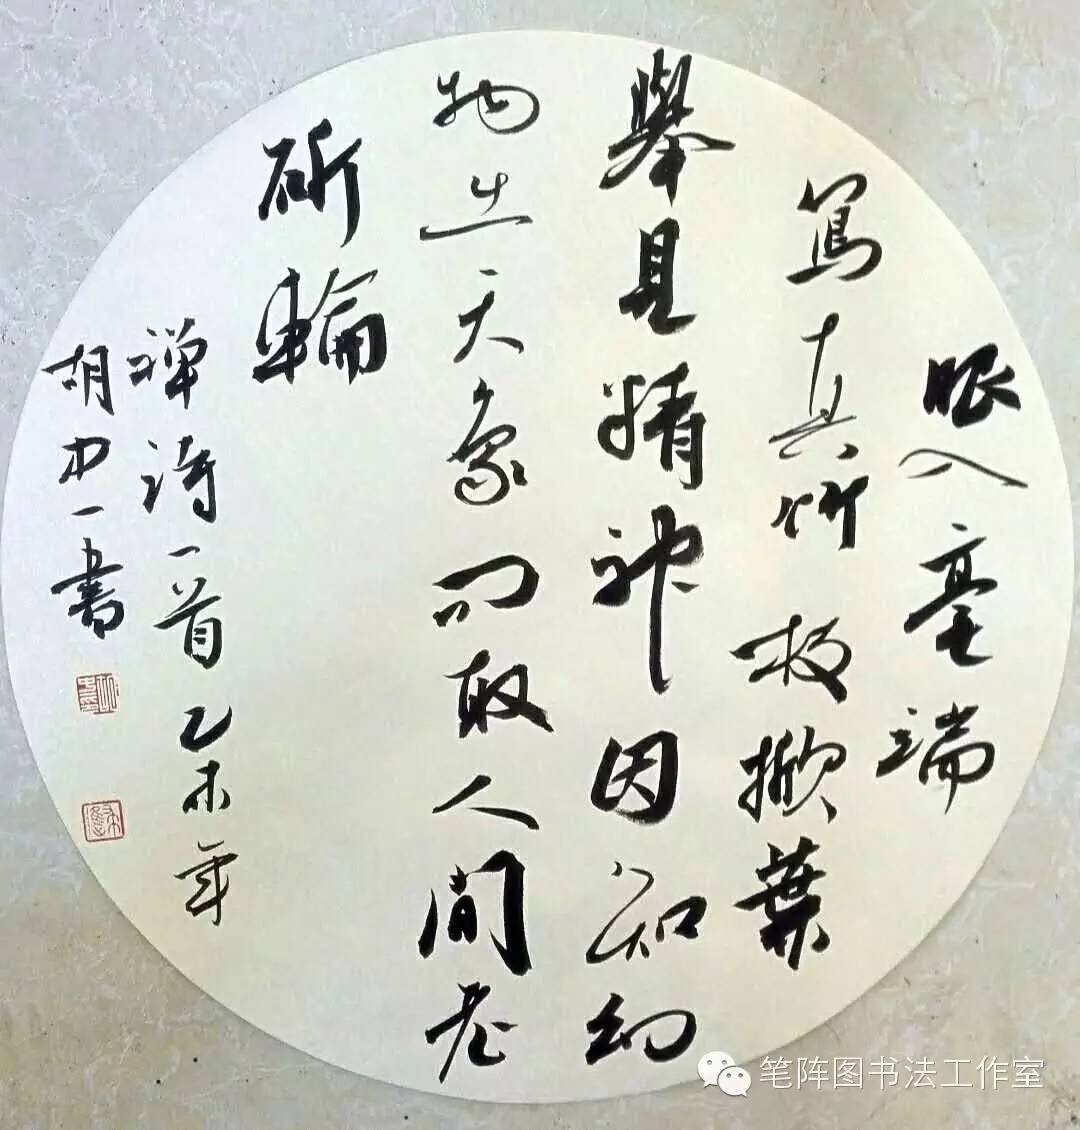 眼入毫端
寫真竹枝掀葉
舉見精神因知幻
物出天象問取人間老
斫輪
禪詩一首乙未年
胡一書
笔阵图书法工作室